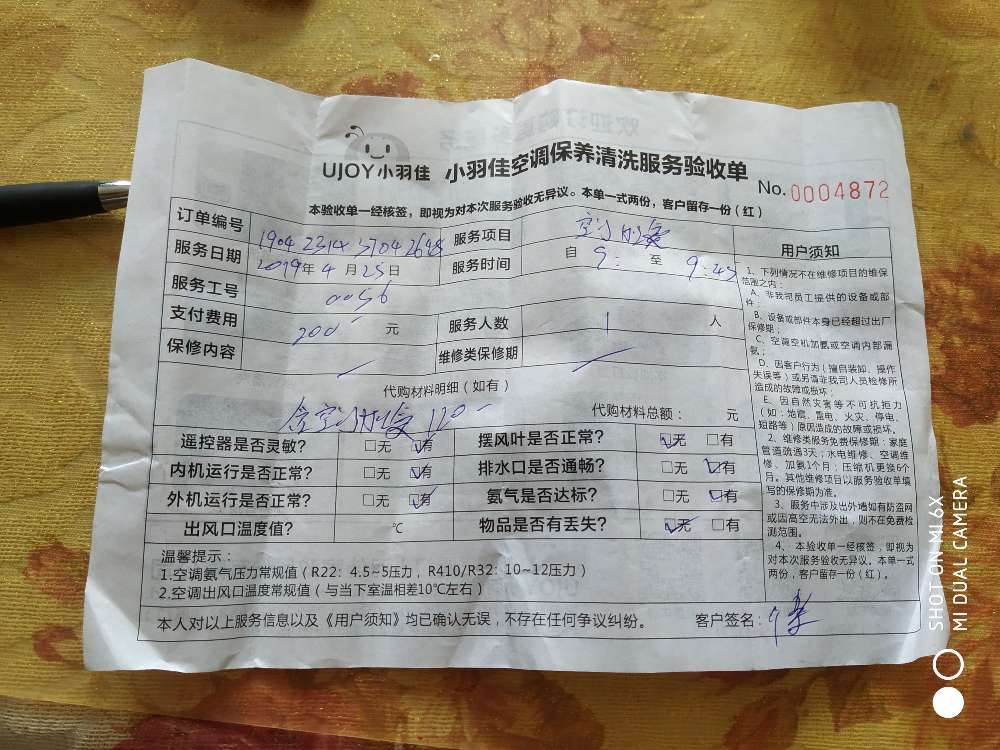 UJOY小羽佳 小羽佳空调保养清洗服务验收单
No. 0004872
本验收单一经核签，即视为对本次服务验收无异议。本单一式两份，客户留存一份（红）
订单编号 服务项目 空调
服务日期 2019年4月25日 服务时间 自 9: 至 9:45
服务工号 0056
支付费用 200 元 服务人数 1 人
保修内容 维修类保修期
代购材料明细（如有）
空调 110 代购材料总额： 元
遥控器是否灵敏？ □无 □有 摆风叶是否正常？ □无 □有
内机运行是否正常？ □无 □有 排水口是否通畅？ □无 □有
外机运行是否正常？ □无 □有 氨气是否达标？ □无 □有
出风口温度值？ ℃ 物品是否有丢失？ □无 □有
温馨提示：
1.空调氨气压力常规值（R22：4.5~5压力，R410/R32：10~12压力）
2.空调出风口温度常规值（与当下室温相差10℃左右）
本人对以上服务信息以及《用户须知》均已确认无误，不存在任何争议纠纷。 客户签名：
用户须知
1、下列情况不在维修项目的维保
范围之内：
A、非我司员工提供的设备或部
件；
B、设备或部件本身已经超过出厂
保修期；
C、空调空机加氨或空调内部漏
氨；
D、因客户行为（擅自装卸、操作
失误等）或另请非我司人员检修所
造成的故障或损坏；
E、因自然灾害等不可抗拒力
（如：地震、雷电、火灾、停电、
短路等）原因造成的故障或损坏。
2、维修类服务免费保修期：家庭
管道疏通3天；水电维修、空调维
修、加氨1个月；压缩机更换6个
月。其他维修项目以服务验收单填
写的保修期为准。
3、服务中涉及出外墙如有防盗网
或因高空无法外出，则不在免费检
测范围。
4、本验收单一经核签，即视为
对本次服务验收无异议。本单一式
两份，客户留存一份（红）。
SHOT ON MI 6X
MI DUAL CAMERA